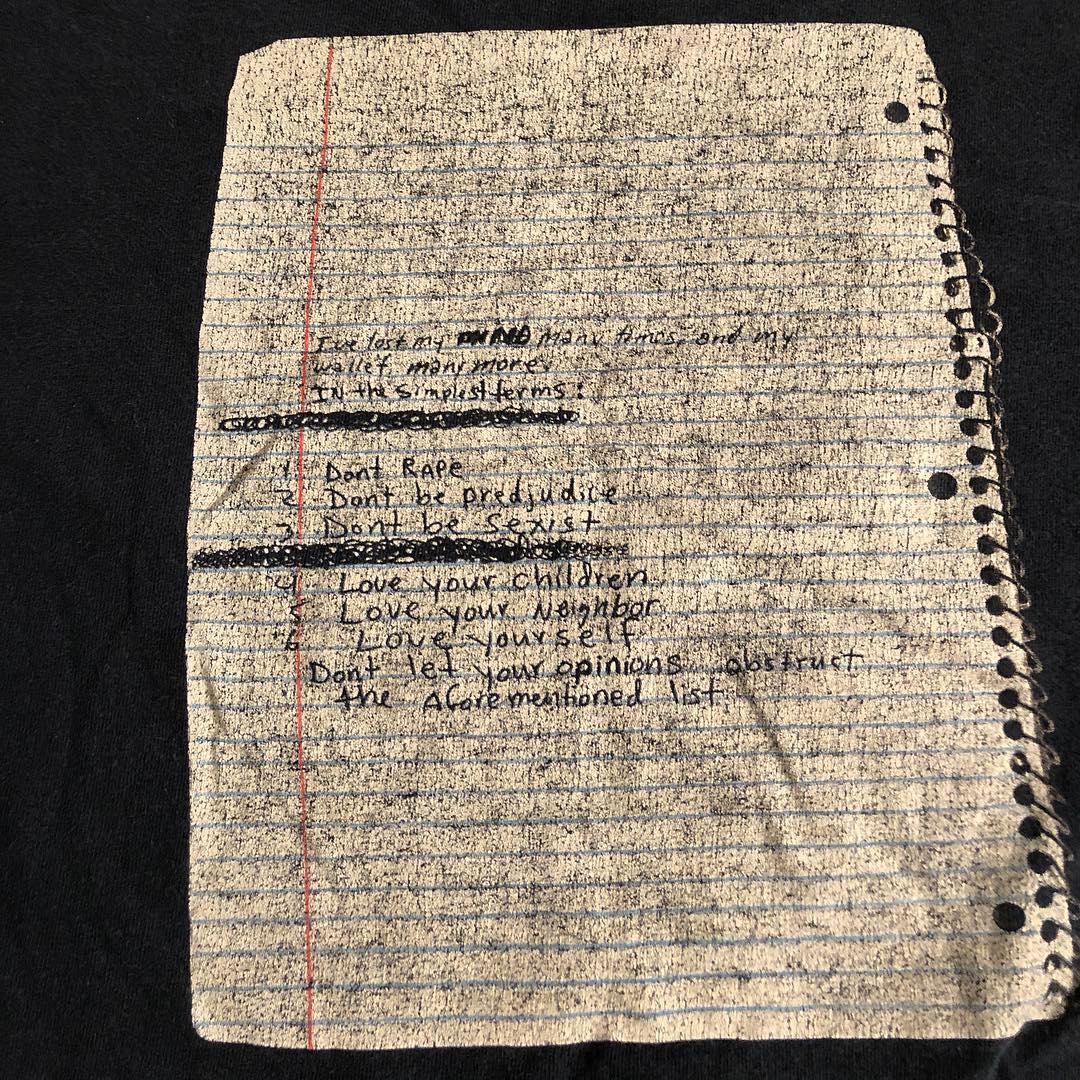 I've lost my MIND many times, and my
wallet many more.
IN the simplest terms:
1. Dont RAPE
2 Dont be predjudice
3. Dont be sexist
4 Love your children
5 Love your Neighbor
6 Love yourself
Dont let your opinions obstruct
the aforementioned list.